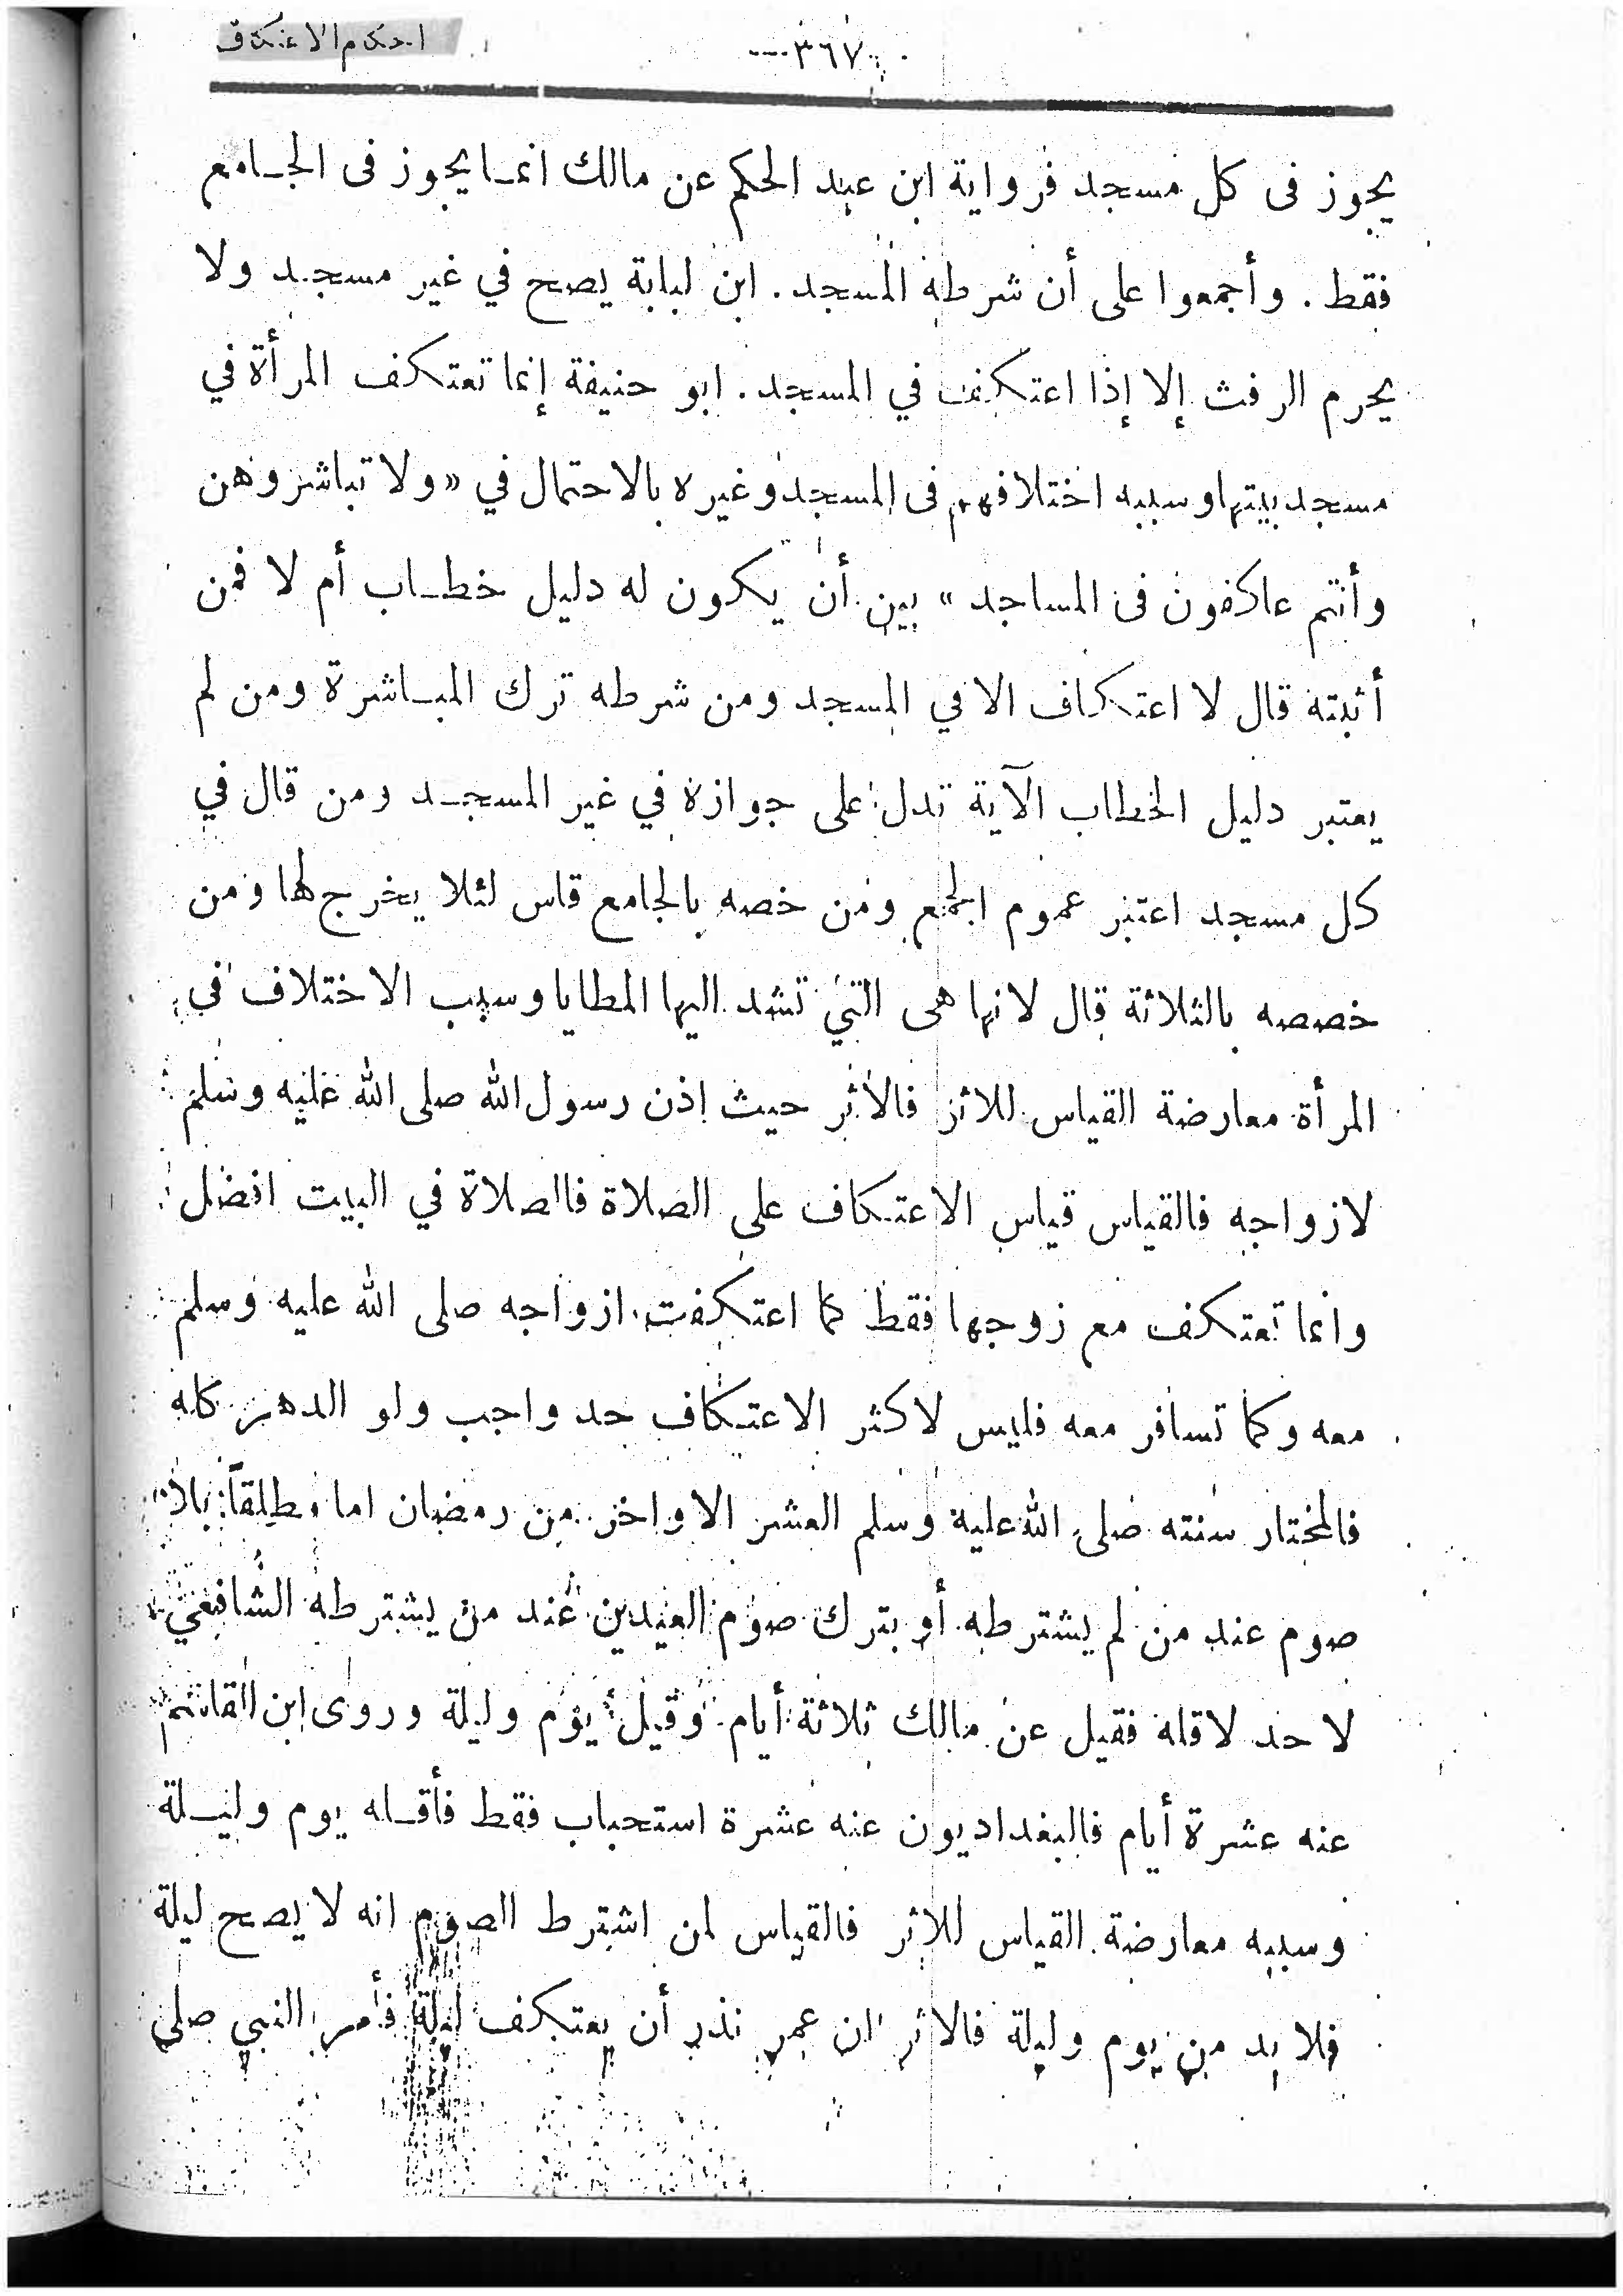 احكام الاعتكاف
٣٦٧
يجوز فى كل مسجد فرواية ابن عبد الحكم عن مالك انما يجوز فى الجامع
فقط . وأجمعوا على أن شرطه المسجد . ابن لبابة يصح في غير مسجد ولا
يحرم الرفث إلا إذا اعتكف في المسجد . ابو حنيفة إنما تعتكف المرأة في
مسجد بيتها وسببه اختلافهم فى المسجد وغيره بالاحتمال في « ولا تباشروهن
وأنتم عاكفون فى المساجد » بين أن يكون له دليل خطاب أم لا فمن
أثبته قال لا اعتكاف الا في المسجد ومن شرطه ترك المباشرة ومن لم
يعتبر دليل الخطاب الآية تدل على جوازه في غير المسجد ومن قال في
كل مسجد اعتبر عموم الجمع ومن خصه بالجامع قاس لئلا يخرج لها ومن
خصصه بالثلاثة قال لانها هى التي تشد اليها المطايا وسبب الاختلاف في
المرأة معارضة القياس للاثر فالأثر حيث اذن رسول الله صلى الله عليه وسلم
لازواجه فالقياس قياس الاعتكاف على الصلاة فالصلاة في البيت افضل
وانما تعتكف مع زوجها فقط كما اعتكفت ازواجه صلى الله عليه وسلم
معه وكما تسافر معه فليس لاكثر الاعتكاف حد واجب ولو الدهر كله
فالمختار سنته صلى الله عليه وسلم العشر الاواخر من رمضان اما مطلقاً بلا
صوم عند من لم يشترطه أو بترك صوم العيدين عند من يشترطه الشافعي
لا حد لاقله فقيل عن مالك ثلاثة أيام وقيل يوم وليلة وروى ابن القاسم
عنه عشرة أيام فالبغداديون عنه عشرة استحباب فقط فأقله يوم وليلة
وسببه معارضة القياس للاثر فالقياس لمن اشترط الصوم انه لا يصح ليلة
فلا بد من يوم وليلة فالاثر ان عمر نذر أن يعتكف ليلة فأمر النبي صلى